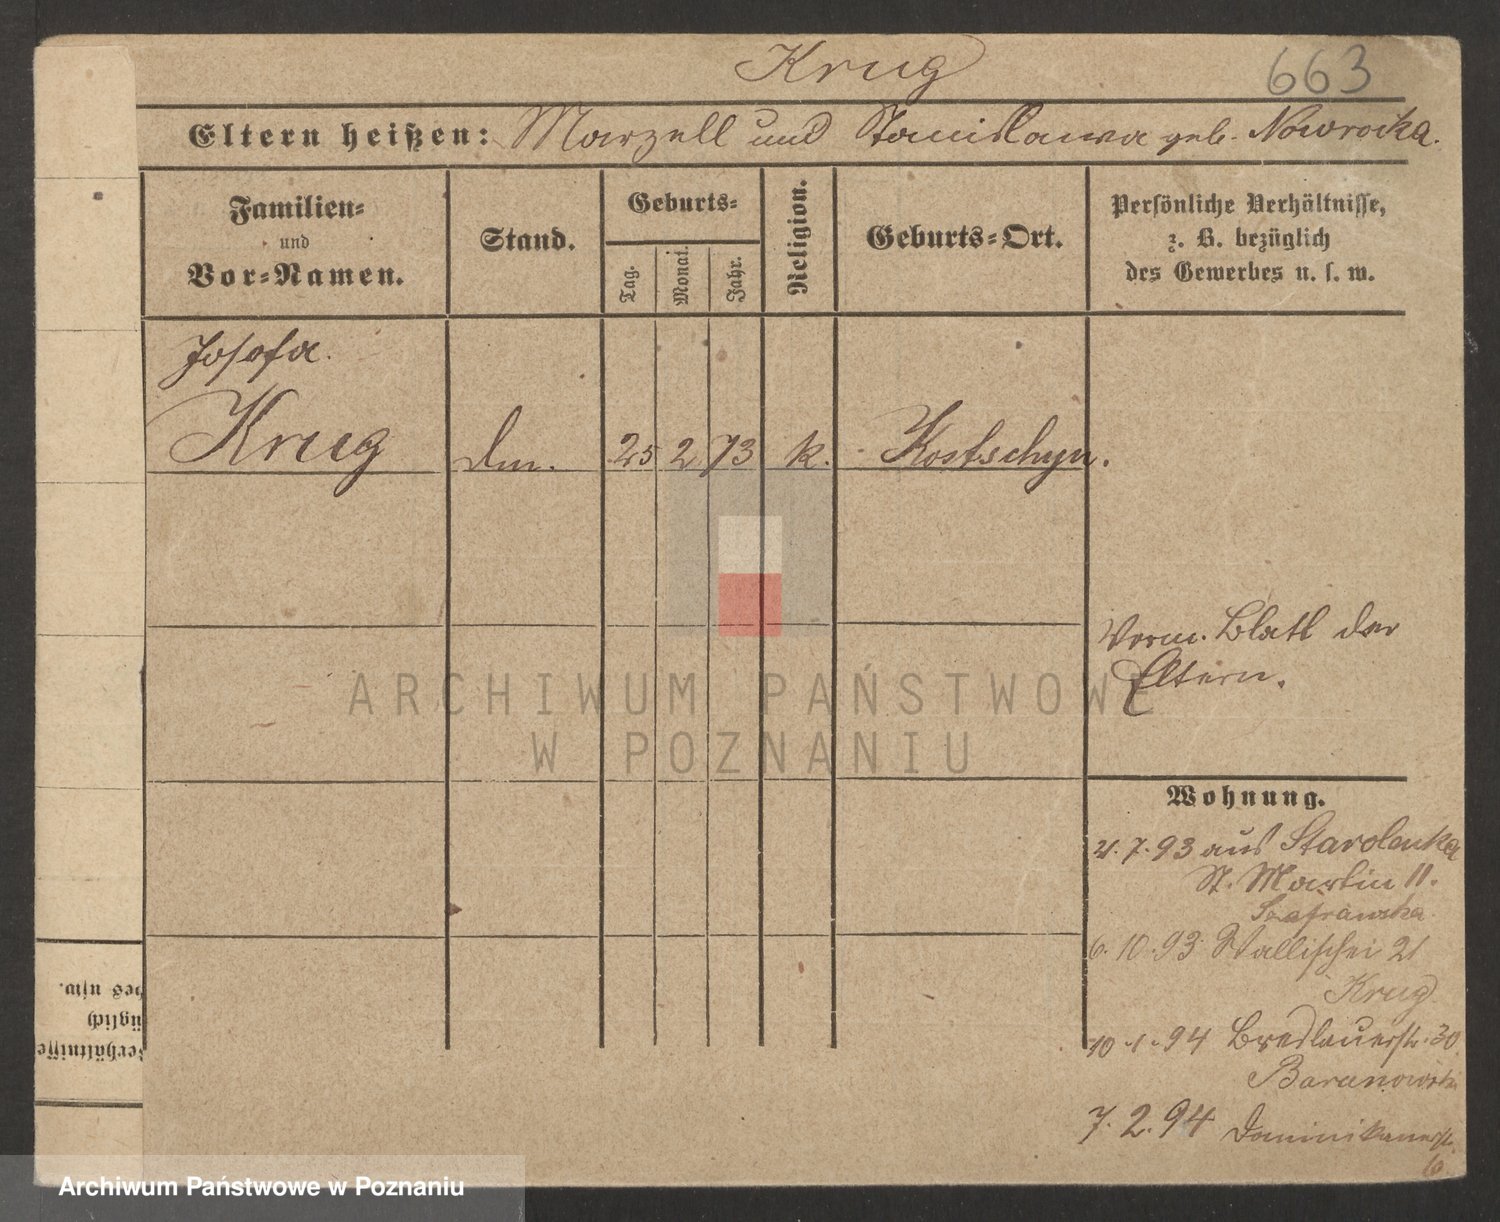 Krug
663
Eltern heißen: Marzell und Stanislawa geb. Nowrocka.
Familien-
und
Vor-Namen.
Stand.
Geburts-
Tag.
Monat.
Jahr.
Religion.
Geburts-Ort.
Persönliche Verhältnisse,
z. B. bezüglich
des Gewerbes u. s. w.
Josefa.
Krug
25 2 73 k. Kostschyn.
Verm. Blatt der
Eltern.
Wohnung.
7. 93 aus Starolenka
St. Martin 11.
Szafranska
6. 10. 93 Wallischei 21
Krug
10. 1. 94 Breslauerstr. 30
Baranowski
7. 2. 94 Dominikanerstr.
6
des usw.
züglich
Verhältnisse
ARCHIWUM PAŃSTWOWE
W POZNANIU
Archiwum Państwowe w Poznaniu